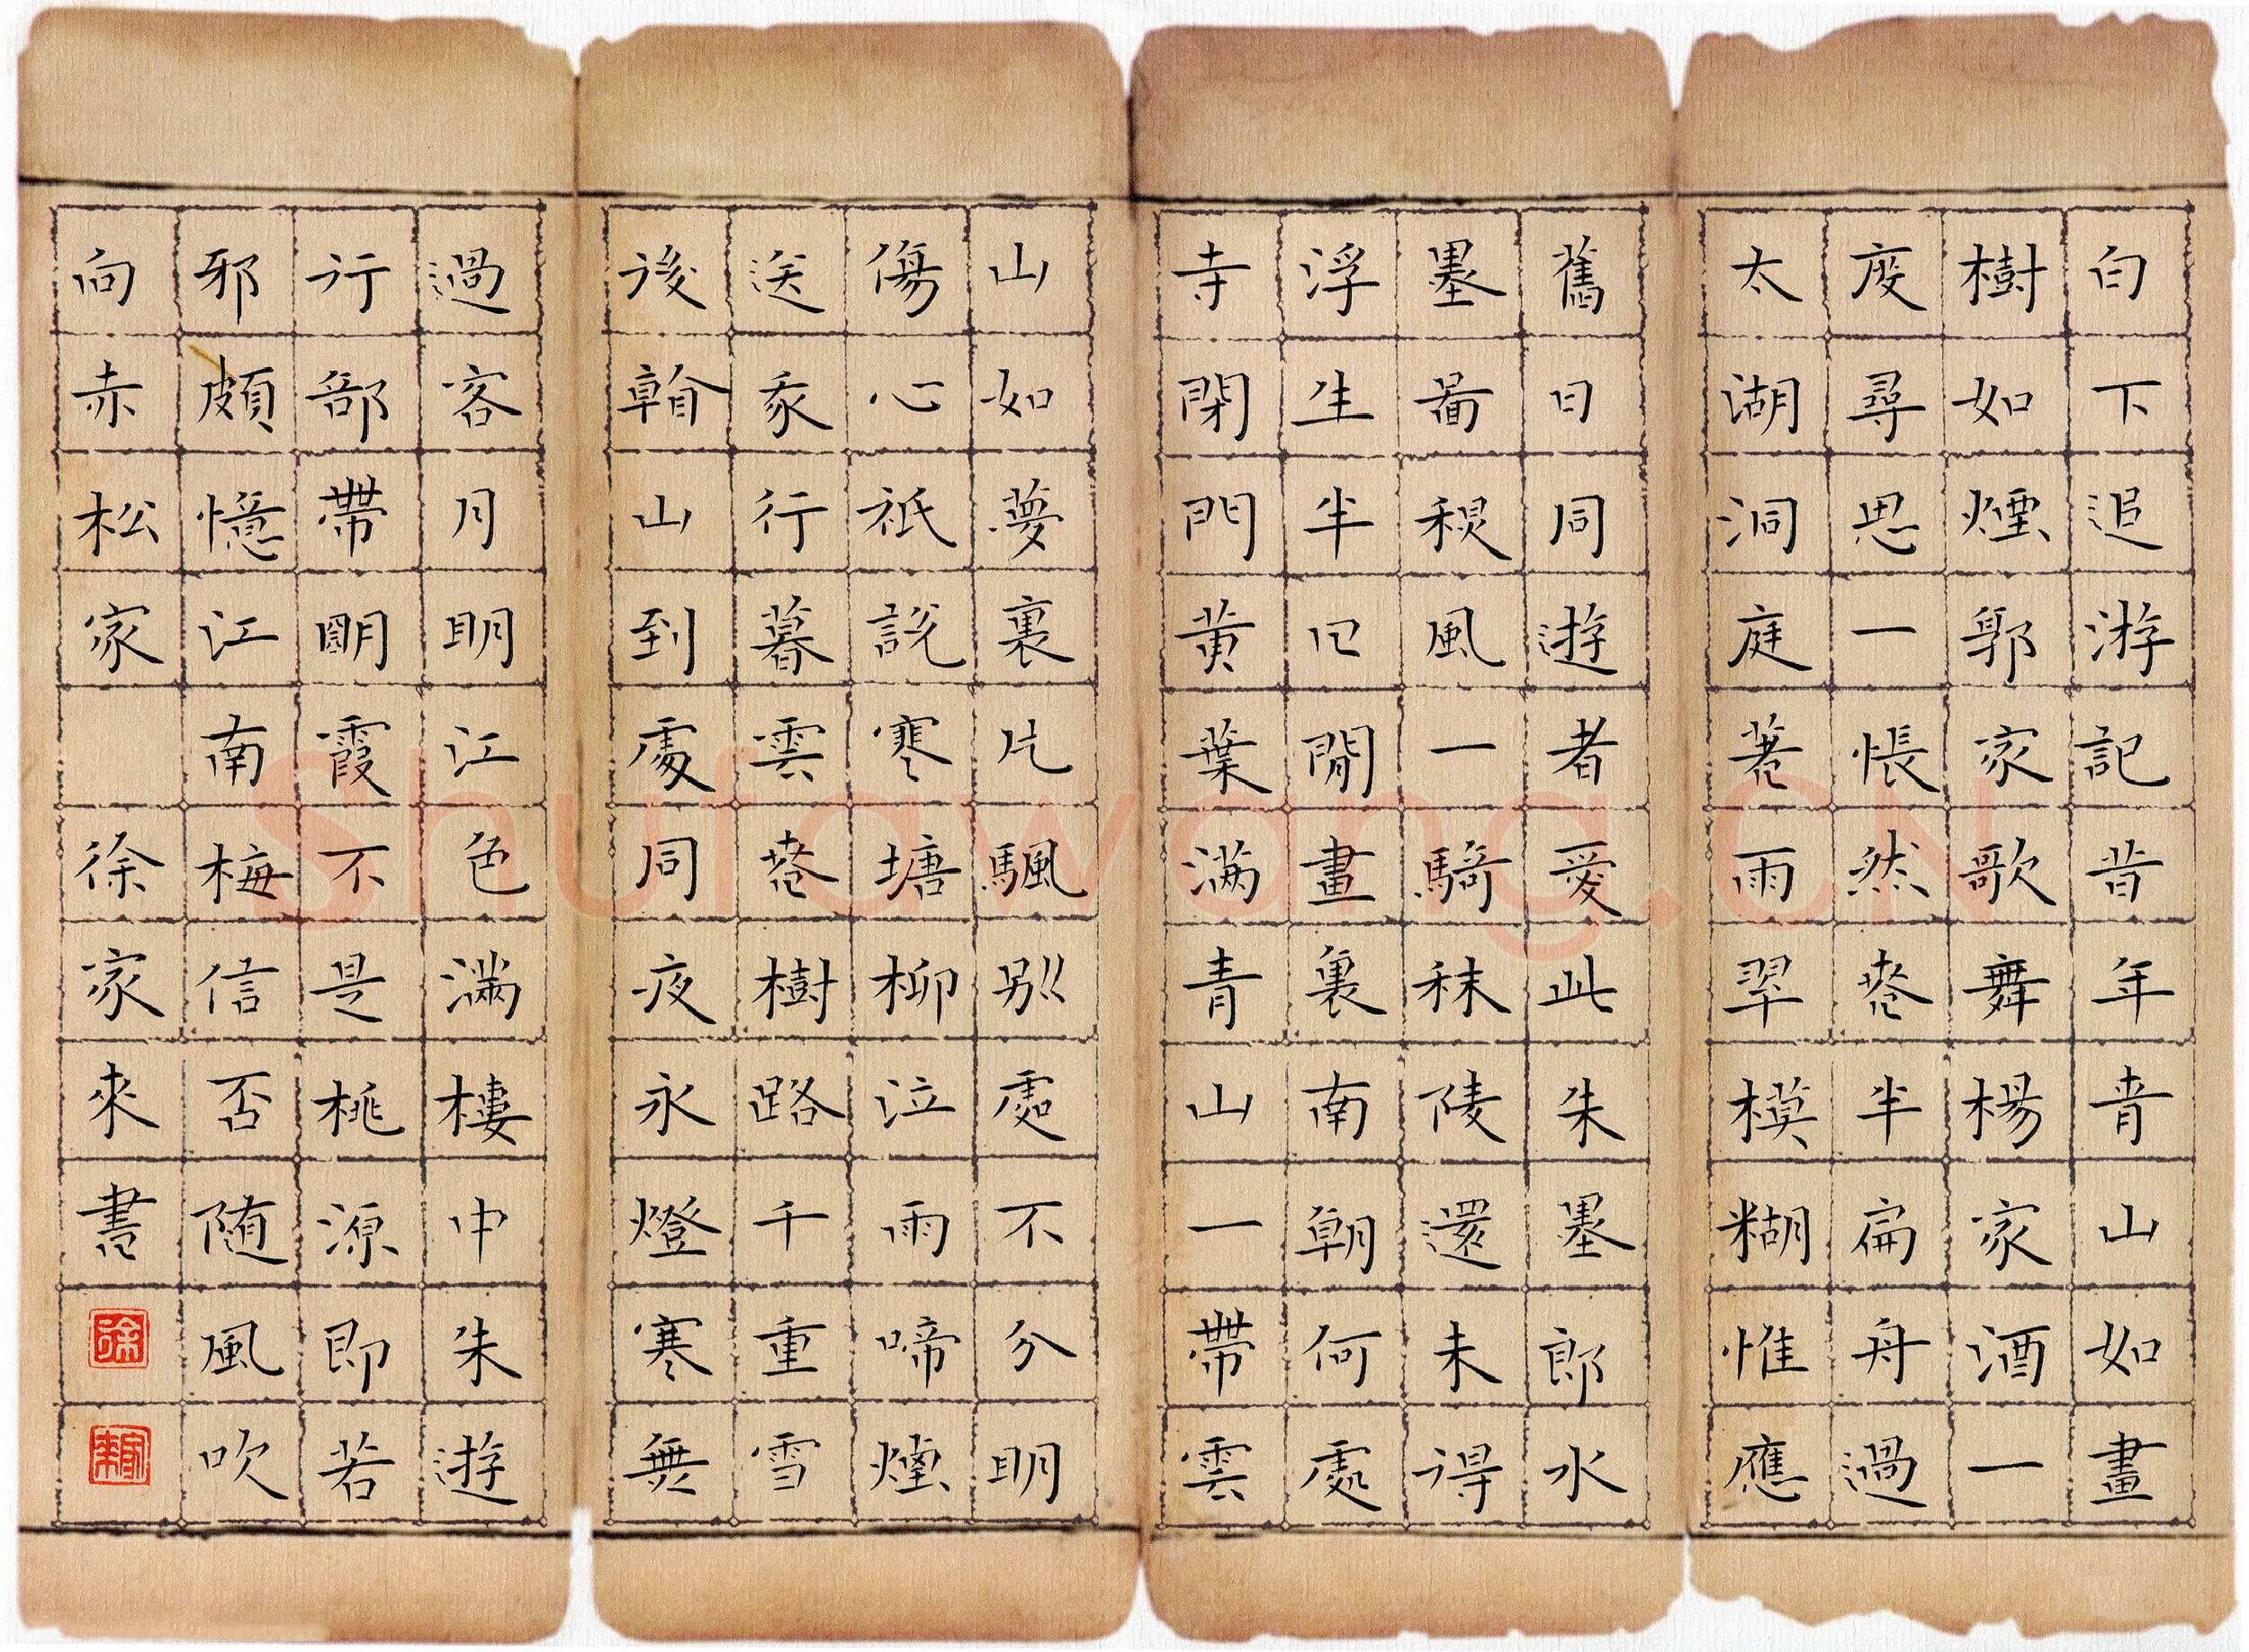 白下追游記昔年青山如畫
樹如煙郭家歌舞楊家酒一
度尋思一悵然春半扁舟過
太湖洞庭春雨翠模糊惟應
舊日同遊者愛此朱墨郎水
墨啚秋風一騎秣陵還未得
浮生半日閒畫裏南朝何處
寺閉門黃葉滿青山一帶雲
山如夢裏片颿別處不分明
傷心祇說寒塘柳泣雨啼煙
送我行暮雲春樹路千重雪
後山到處同夜永燈寒無
過客月明江色滿樓中朱遊
行部帶朙霞不是桃源即若
邪頗憶江南梅信否随風吹
向赤松家 徐家來書
shufawang.CN